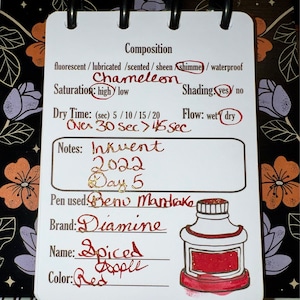 Composition
fluorescent / lubricated / scented / sheen / shimmer / waterproof
Chameleon
Saturation: high / low Shading: yes / no
Dry Time: (sec) 5 / 10 / 15 / 20 Flow: wet / dry
Over 30 sec > 45 sec
Notes: Inkvent
2022
Day 5
Pen used: Benu Mandrake
Brand: Diamine
Name: Spiced
Apple
Color: Red